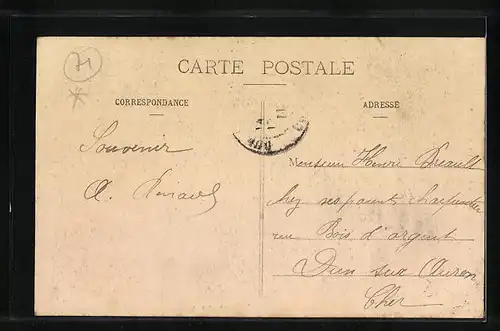 71
CARTE POSTALE
CORRESPONDANCE
ADRESSE
Souvenir
A. Renault
Monsieur Henri
chez ses parents charpentier
rue Bois d'argent
Dun sur Auron
Cher